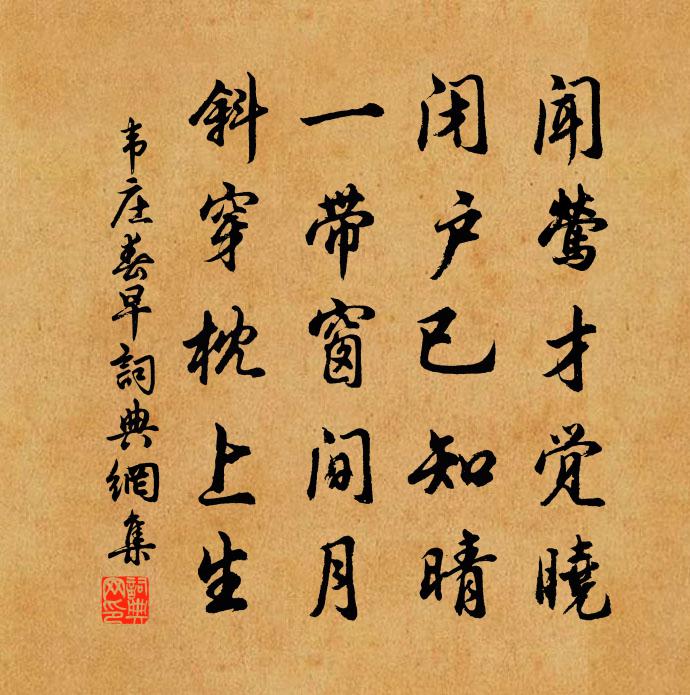 闻莺才觉曉
闭户已知晴
一带窗间月
斜穿枕上生
韦庄春早詞典網集
詞典網印